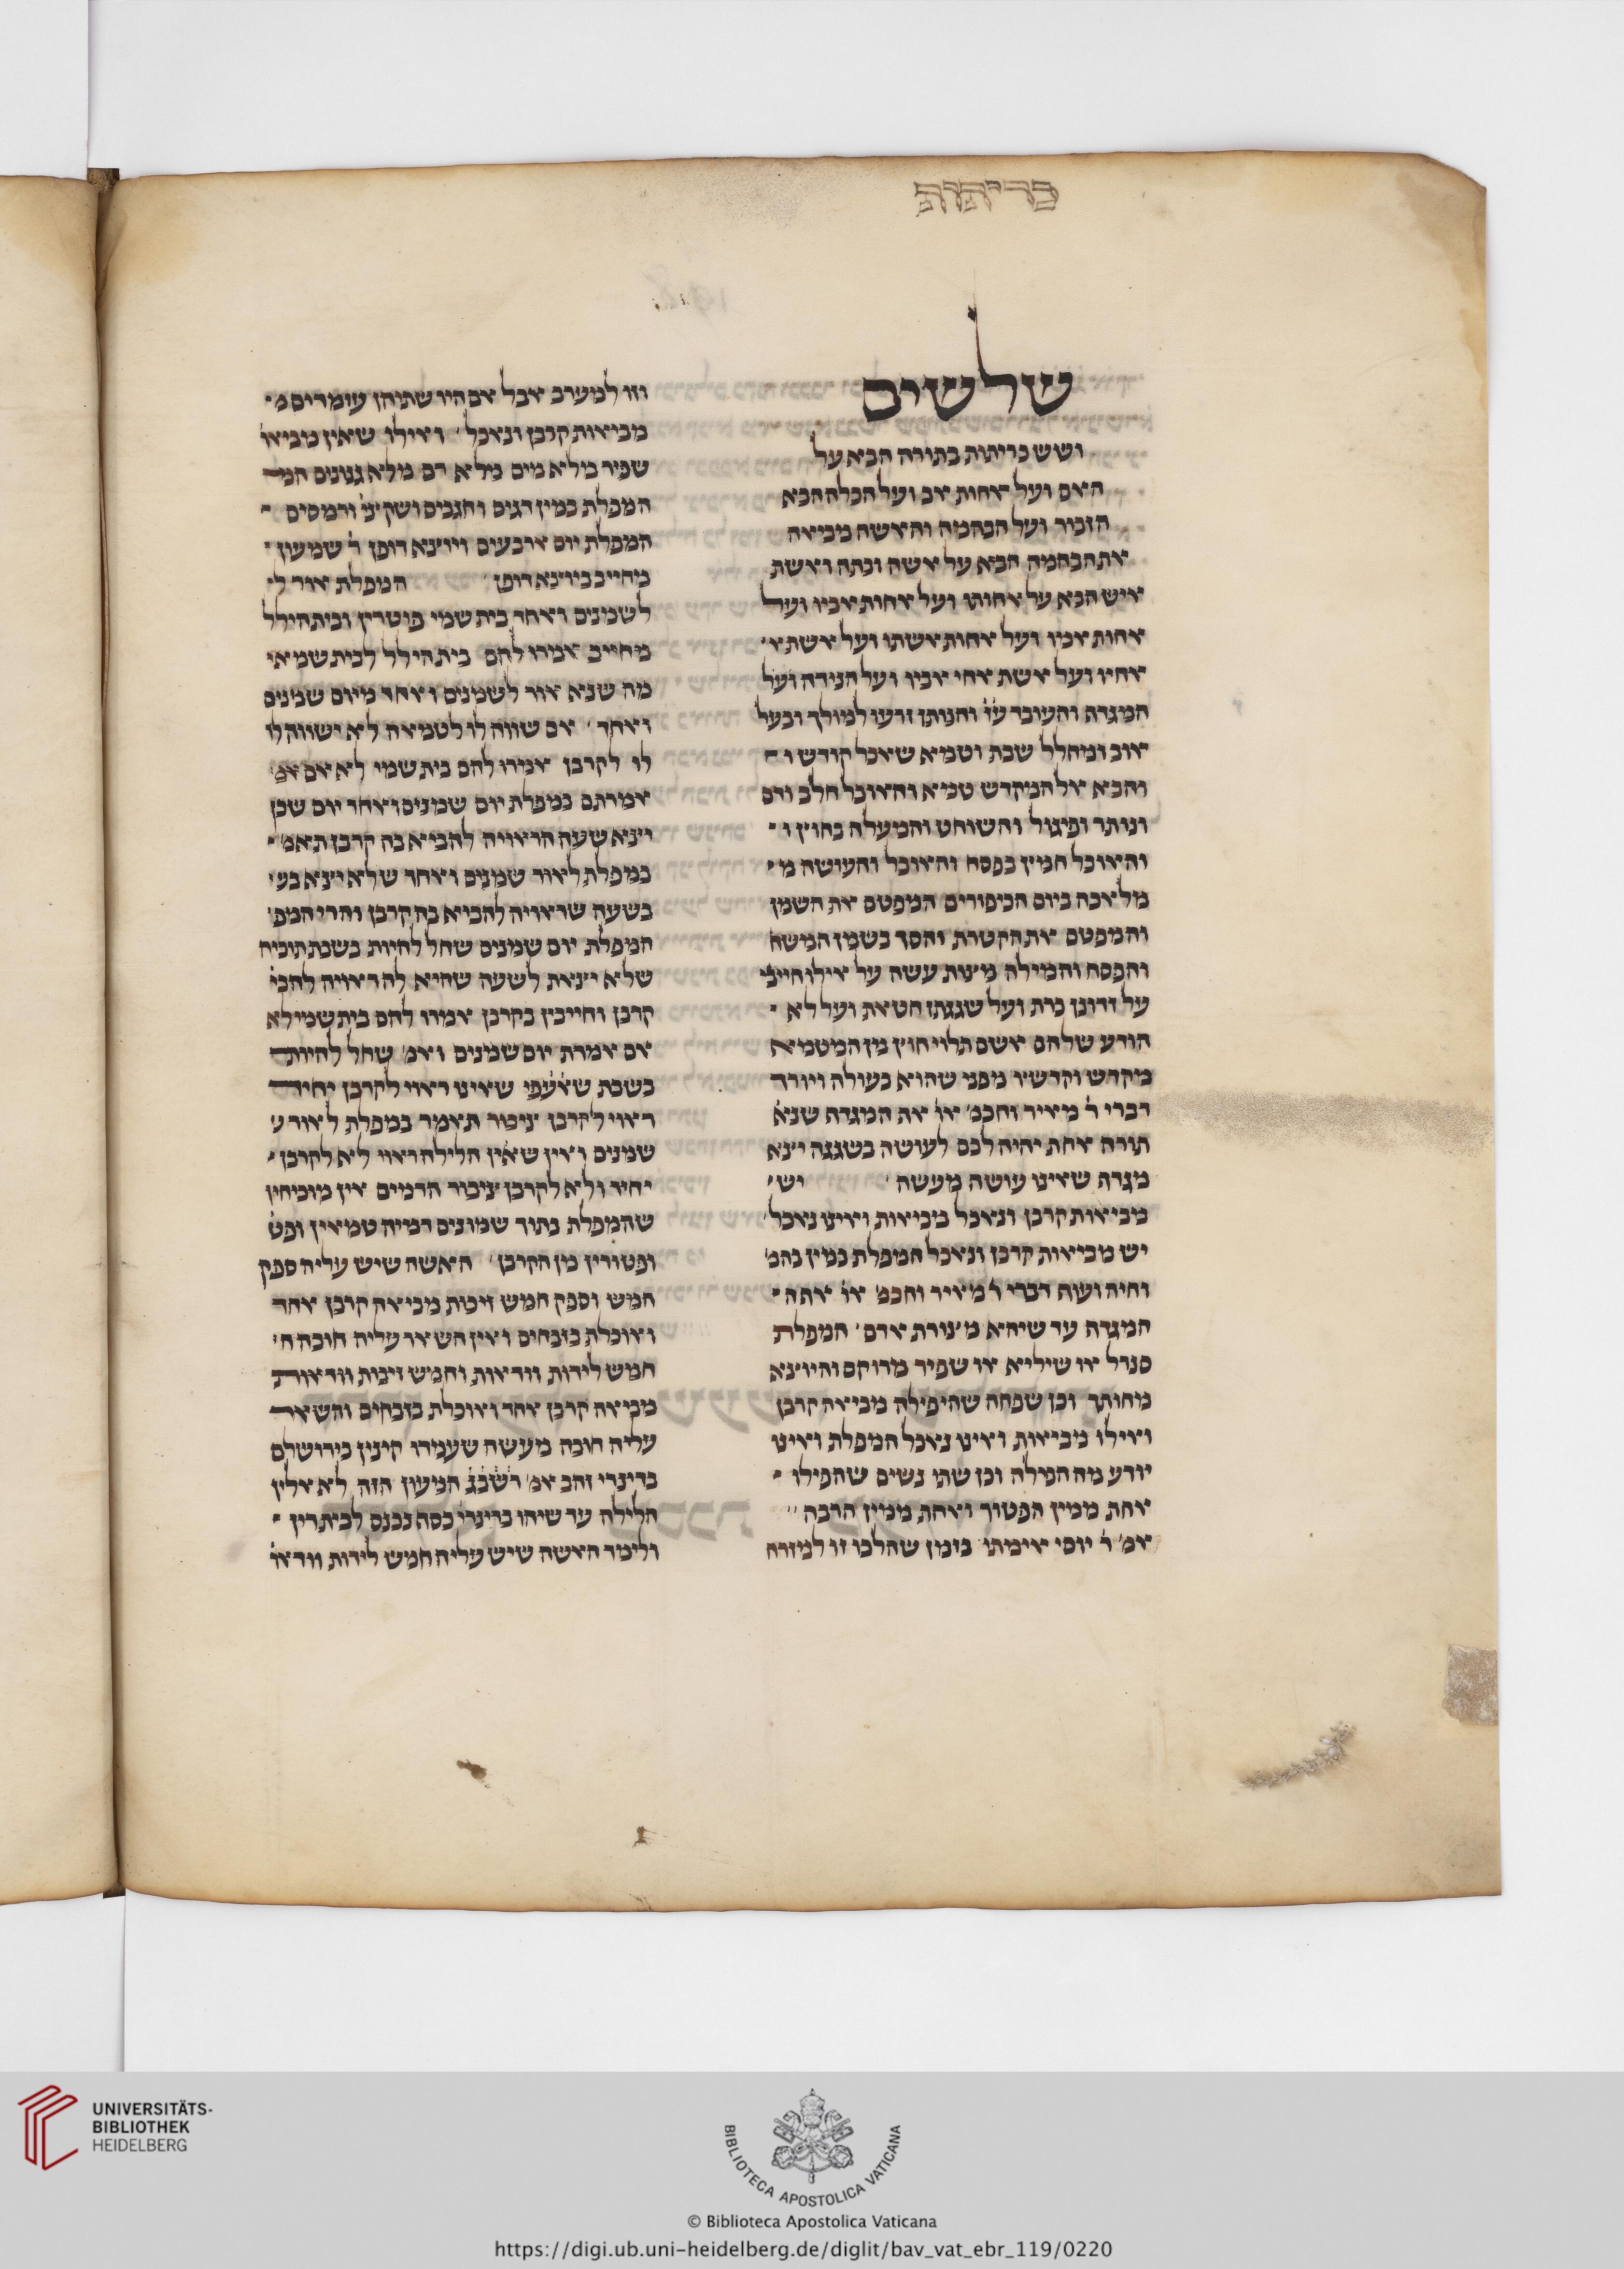 כריתות
שלשים
ושש כריתות בתורה הבא על
האם ועל אחות אב ועל הכלה הבא
הזכור ועל הבהמה והאשה מביאה
את הבהמה הבא על אשה ובתה ואשת
איש הבא על אחותו ועל אחות אביו ועל
אחות אמו ועל אחות אשתו ועל אשת א׳
אחיו ועל אשת אחי אביו ועל הנידה ועל
המגדף והעובר ע׳ז׳ והנותן זרעו למולך ובעל
אוב ומחלל שבת וטמא שאכל קודש וה
והבא אל המקדש טמא והאוכל חלב ודם
ונותר ופיגול והשוחט והמעלה בחוץ ו
והאוכל חמץ בפסח והאוכל והעושה מ
מלאכה ביום הכיפורים המפטם את השמן
והמפטם את הקטרת והסך בשמן המשחה
והפסח והמילה מצות עשה על אילו חייבי׳
על זדונן כרת ועל שגגתן חטאת ועל לא
הודע שלהם אשם תלוי חוץ מן המטמא
מקדש וקדשיו מפני שהוא בעולה ויורד
דברי ר׳ מאיר וחכמ׳ או׳ אף המגדף שנא׳
תורה אחת יהיה לכם לעושה בשגגה יצא
מגדף שאינו עושה מעשה ׳ יש׳
מביאות קרבן ונאכל מביאות ואינו נאכל׳
יש מביאות קרבן ונאכל המפלת כמין בהמ׳
וחיה ועוף דברי ר׳ מאיר וחכמ׳ או׳
המגדה עד שיהא מצורת אדם׳ המפלת
סנדל או שיליא או שפיר מרוקם והיוצא
מחותך וכן שפחה שהיפילה מביאה קרבן
ואילו מביאות ואינו נאכל המפלת ואינו
יודע מה הפילה וכן שתי נשים שהפילו
אחת ממין הפטור ואחת ממין הובה׳׳
אמ׳ ר׳ יוסי אימתי בזמן שהלכו זו למזרח
וזו למערב אבל אם היו שתיהן עומדים מ
מביאות קרבן ונאכל׳ ואילו שאין מביאו׳
שפיר מלא מים מלא דם מלא גנונים המ׳
המפלת כמין דגים וחגבים ושקצי׳ ורמסים
המפלת יום ארבעים ויוצא דופן ר׳ שמעון
מחייב ביוצא דופן׳ המפלת אור ל
לשמנים ואחד בית שמי פוטרין ובית הילל
מחייב אמרו להם בית הילל לבית שמאי
מה שנא אור לשמנים ואחד מיום שמנים
ואחד׳ אם שווה לו לטמיאה לא ישווה לו
לו לקרבן אמרו להם בית שמי לא אם אמ׳
אמרתם במפלת יום שמנים ואחד יום שכן
יצא שעה הראויה להביא בה קרבן תאמ׳
במפלת לאור שמנים ואחד שלא יצא בע׳
בשעה שראויה להביא בה קרבן והרי המפ׳
המפלת יום שמנים שחל להיות בשבת תוכיח
שלא יצאת לשעה שהיא לה ראויה להבי׳
קרבן וחייבין בקרבן אמרו להם בית שמי לא
אם אמרת יום שמנים ואמ׳ שחל להיות
בשבת שא׳ע׳פי׳ שאינו ראוי לקרבן יחיד
ראוי לקרבן ציבור תאמר במפלת לאור ש׳
שמנים ואין שאין הלילה ראוי לא לקרבן׳
יחיד ולא לקרבן ציבור הדמים אין מוכיחין
שהמפלת בתוך שמונים דמיה טמאין ופט׳
ופטורין מן הקרבן׳ האשה שיש עליה ספק
חמש וספק חמש זיבות מביאה קרבן אחד
ואוכלת בזבחים ואין השאר עליה חובה ח׳
חמש לידות וודאות וחמש זיבות וודאות
מביאה קרבן אחד ואוכלת בזבחים והשאר
עליה חובה מעשה שעמדו קינין בירושלם
בדינרי זהב אמ׳ ר׳ש׳ב׳ג׳ המעון הזה לא אלין
הלילה עד שיהו בדינרי כסף נכנס לבית דין
ולימד האשה שיש עליה חמש לידות וודאו׳
UNIVERSITÄTS-
BIBLIOTHEK
HEIDELBERG
BIBLIOTECA APOSTOLICA VATICANA
© Biblioteca Apostolica Vaticana
https://digi.ub.uni-heidelberg.de/diglit/bav_vat_ebr_119/0220